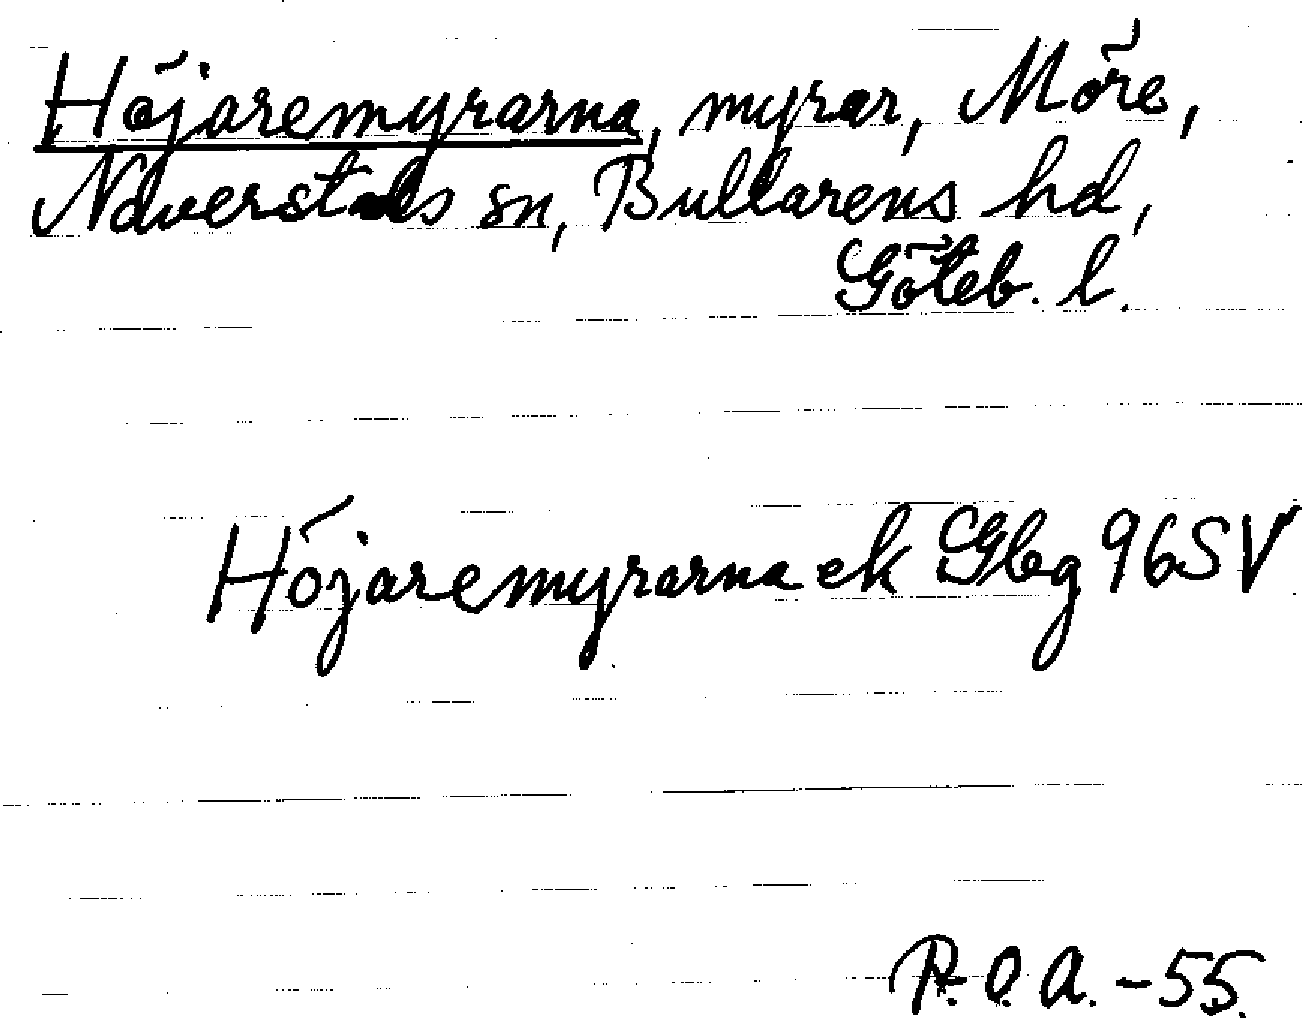 Höjaremyrarna, myrar, Möre,
Naverstads sn, Bullarens hd,
Göteb. l.
Höjaremyrarna ek Gbg 96SV
R.O.A. -55.